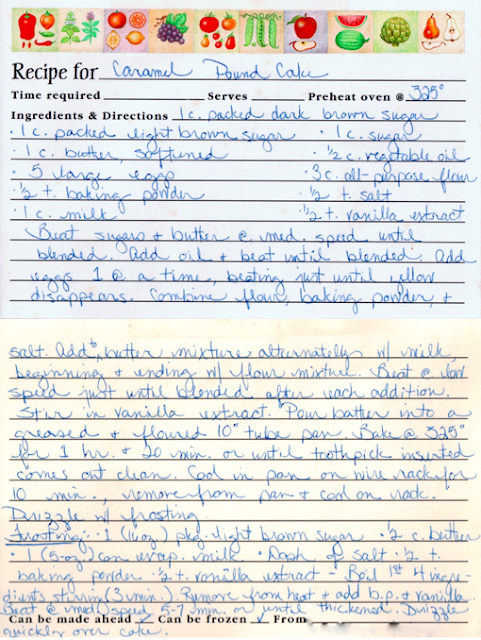 Recipe for Caramel Pound Cake
Time required Serves Preheat oven @ 325°
Ingredients & Directions 1 c. packed dark brown sugar
· 1 c. packed light brown sugar · 1 c. sugar
· 1 c. butter, softened · 1/2 c. vegetable oil
· 5 large eggs · 3 c. all-purpose flour
· 1/2 t. baking powder · 1/2 t. salt
· 1 c. milk · 1/2 t. vanilla extract
Beat sugars & butter @ med. speed until
blended. Add oil & beat until blended. Add
eggs 1 @ a time, beating just until yellow
disappears. Combine flour, baking powder, &
salt. Add to butter mixture alternately w/ milk,
beginning & ending w/ flour mixture. Beat @ low
speed just until blended after each addition.
Stir in vanilla extract. Pour batter into a
greased & floured 10" tube pan. Bake @ 325°
for 1 hr. & 20 min. or until toothpick inserted
comes out clean. Cool in pan on wire rack for
10 min., remove from pan & cool on rack.
Drizzle w/ frosting
Frosting: · 1 (16 oz) pkg. light brown sugar · 1/2 c. butter
· 1 (5-oz) can evap. milk · Dash of salt · 1/2 t.
baking powder · 1/2 t. vanilla extract - Boil 1st 4 ingre-
dients stirring (3 min.). Remove from heat & add b.p. & vanilla.
Beat @ med speed 5-7 min. or until thickened. Drizzle
Can be made ahead ✓ Can be frozen ✓ From
quickly over cake.